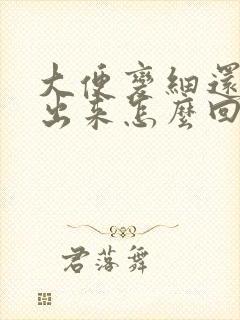 大便變細還
出來怎麼回
君落舞